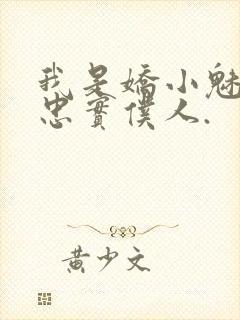 我是嬌小魅
忠實僕人.
黃少文